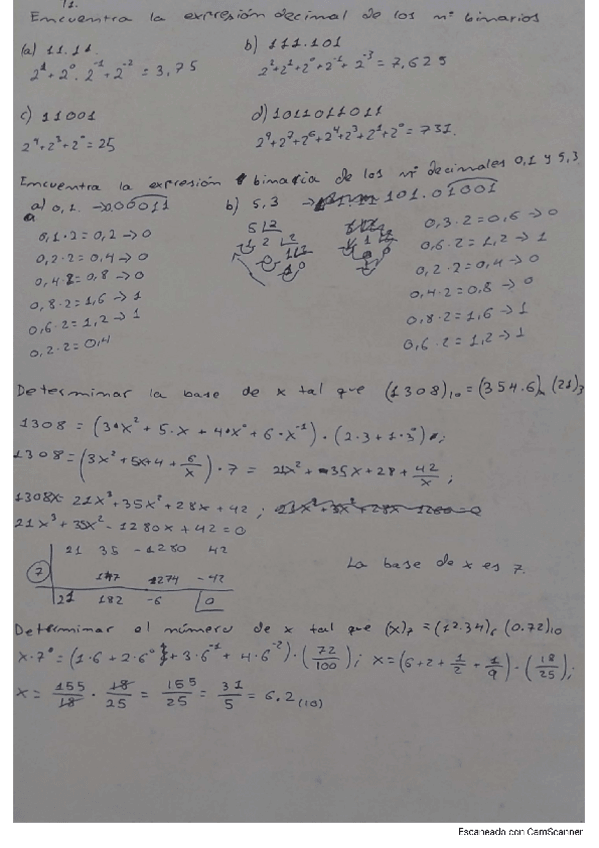 Encuentra la expresión decimal de los nº binarios
(a) 11.11
b) 111.101
2¹+2⁰.2⁻¹+2⁻² = 3,75
2²+2¹+2⁰+2⁻¹+2⁻³ = 7,625
c) 11001
d) 1011011011
2⁴+2³+2⁰ = 25
2⁹+2⁷+2⁶+2⁴+2³+2¹+2⁰ = 731.
Encuentra la expresión binaria de los nº decimales 0,1 y 5,3
a) 0,1 → 0.00011
b) 5.3 → 101.01001
0,1·2=0,2→0
0,2·2=0,4→0
0,4·2=0,8→0
0,8·2=1,6→1
0,6·2=1,2→1
0,2·2=0,4
0,3·2=0,6→0
0,6·2=1,2→1
0,2·2=0,4→0
0,4·2=0,8→0
0,8·2=1,6→1
0,6·2=1,2→1
Determinar la base de x tal que (1308)₁₀=(354.6)ₓ(21)₃
1308 = (3·x²+5·x+4·x⁰+6·x⁻¹)·(2·3+1·3⁰);
1308=(3x²+5x+4+6/x)·7 = 21x²+35x+28+42/x;
1308x = 21x³+35x²+28x+42;
21x³+35x²-1280x+42=0
21 35 -1280 42
7 147 1274 -42
21 182 -6 0
La base de x es 7.
Determinar el número de x tal que (x)₇=(12.34)₆(0.72)₁₀
x·7⁰=(1·6+2·6⁰+3·6⁻¹+4·6⁻²)·(72/100); x=(6+2+1/2+1/9)·(18/25);
x=155/18·18/25=155/25=31/5=6.2(10)
Escaneado con CamScanner